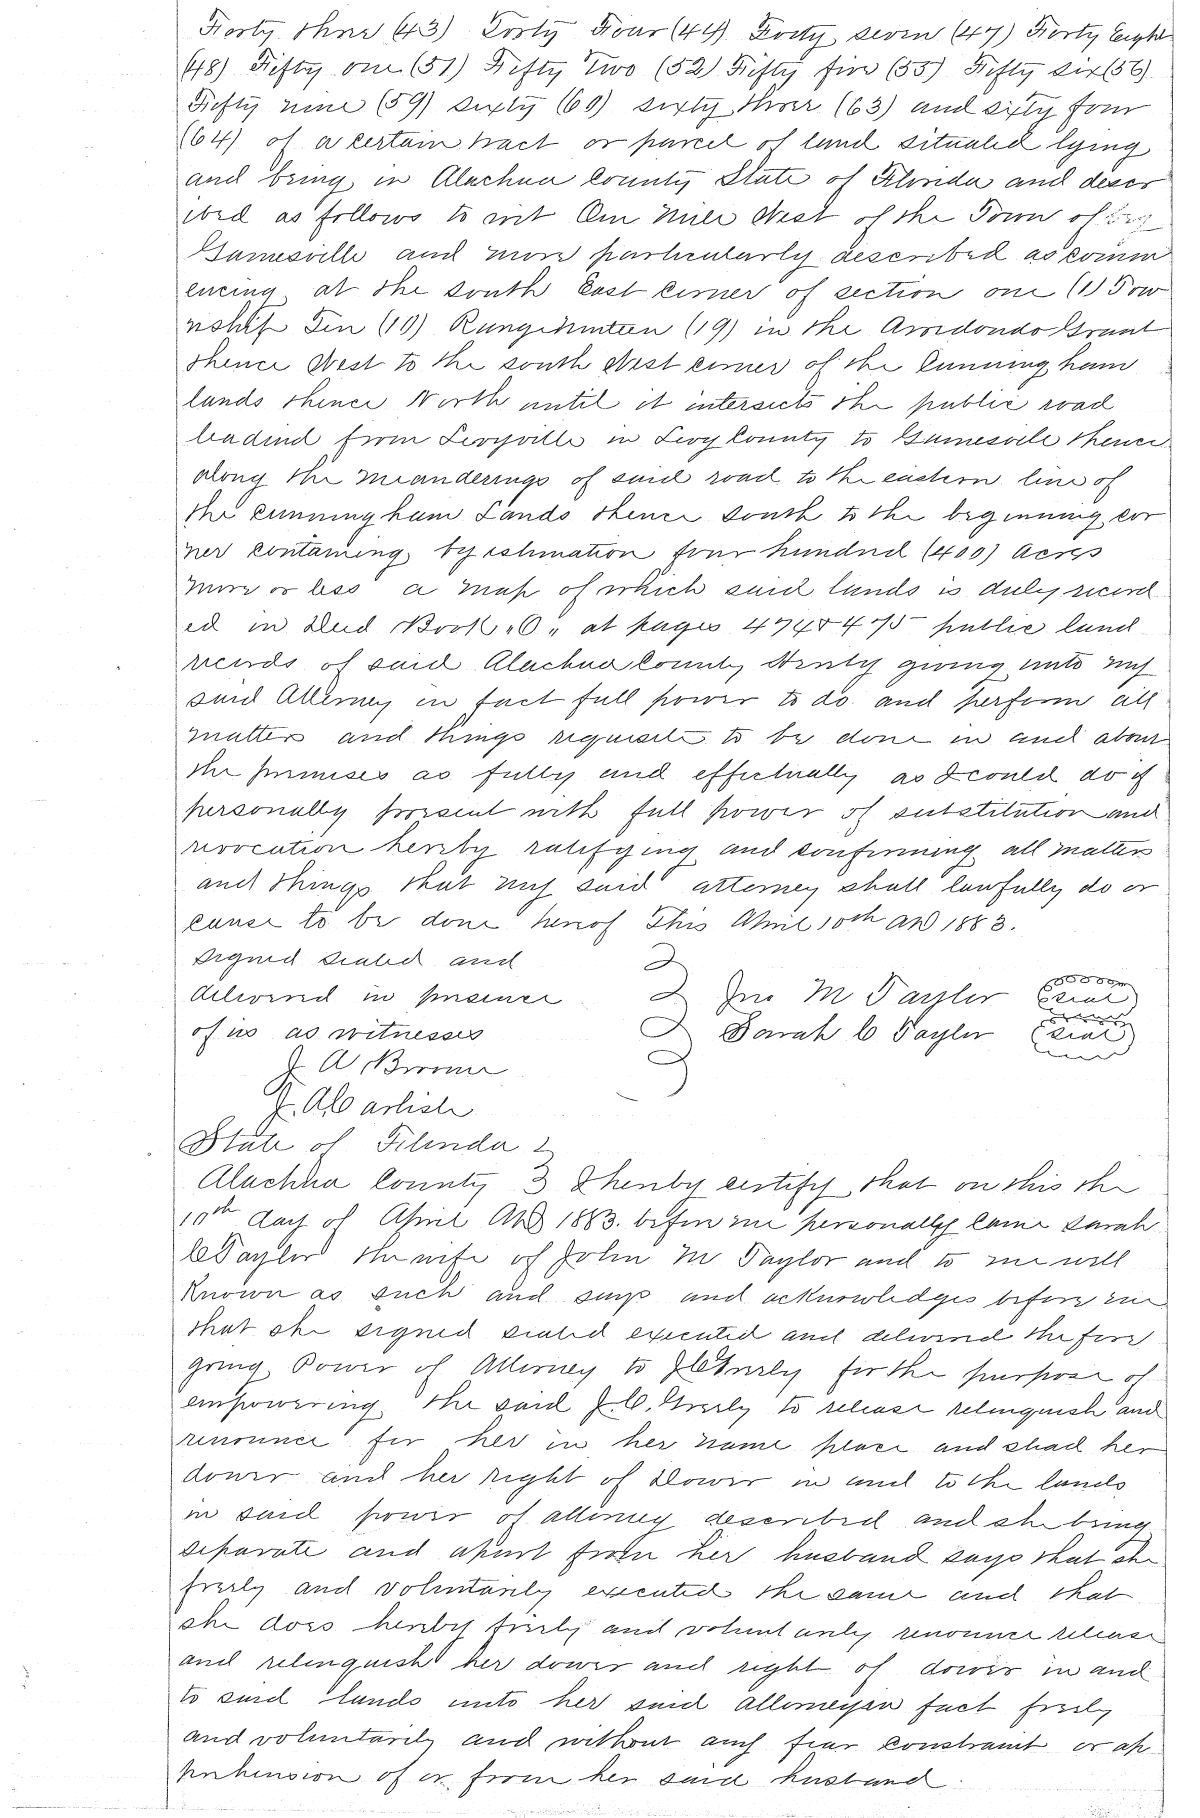 Forty three (43) Forty Four (44) Forty seven (47) Forty Eight
(48) Fifty one (51) Fifty Two (52) Fifty five (55) Fifty six (56)
Fifty nine (59) sixty (60) sixty three (63) and sixty four
(64) of a certain tract or parcel of land situated lying
and being in Alachua County State of Florida and descr
ibed as follows to wit One Mile West of the Town of
Gainesville and more particularly described as comm
encing at the south East corner of section one (1) Tow
nship Ten (10) Range Nineteen (19) in the Arredondo Grant
thence West to the south West corner of the Cunningham
lands thence North until it intersects the public road
leadind from Levyville in Levy County to Gainesville thence
along the meanderings of said road to the eastern line of
the Cunningham Lands thence South to the beginning cor
ner containing by estimation four hundred (400) Acres
more or less a map of which said lands is duly record
ed in Deed Book "O" at pages 474 & 475 public land
records of said Alachua County Hereby giving unto my
said Attorney in fact full power to do and perform all
matters and things requisite to be done in and about
the premises as fully and effectually as I could do if
personally present with full power of substitution and
revocation hereby ratifying and confirming all matters
and things that my said attorney shall lawfully do or
cause to be done hereof This April 10th AD 1883.
Signed sealed and
delivered in presence Jno M Taylor (Seal)
of us as witnesses Sarah C Taylor (Seal)
J A Broome
J. A Carlisle
State of Florida
Alachua County I hereby certify that on this the
10th day of April AD 1883. before me personally came Sarah
C Taylor the wife of John M Taylor and to me well
Known as such and says and acknowledges before me
that she signed sealed executed and delivered the fore
going Power of Attorney to J C Greely for the purpose of
empowering the said J. C. Greely to release relinquish and
renounce for her in her name place and stead her
dower and her right of Dower in and to the lands
in said power of attorney described and she being
separate and apart from her husband says that she
freely and voluntarily executed the same and that
she does hereby freely and voluntarily renounce release
and relinquish her dower and right of dower in and
to said lands unto her said attorney in fact freely
and voluntarily and without any fear constraint or ap
prehension of or from her said husband.